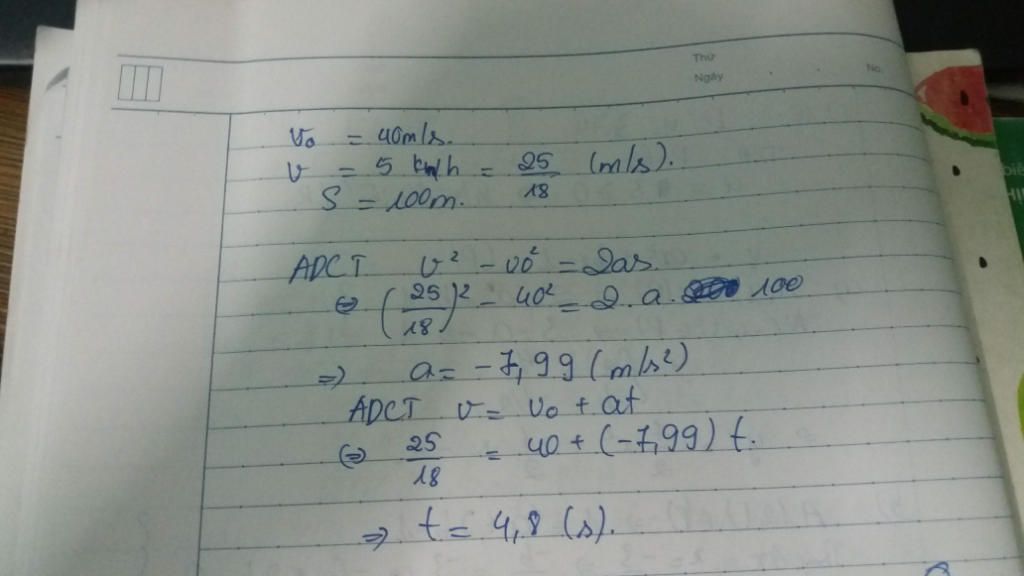 Thứ
Ngày
No.
v₀ = 40m/s.
v = 5 km/h = 25/18 (m/s).
S = 100m.
ADCT v² - v₀² = 2as
⇔ (25/18)² - 40² = 2. a. 100
⇒ a = -7,99 (m/s²)
ADCT v = v₀ + at
⇔ 25/18 = 40 + (-7,99) t.
⇒ t = 4,8 (s).